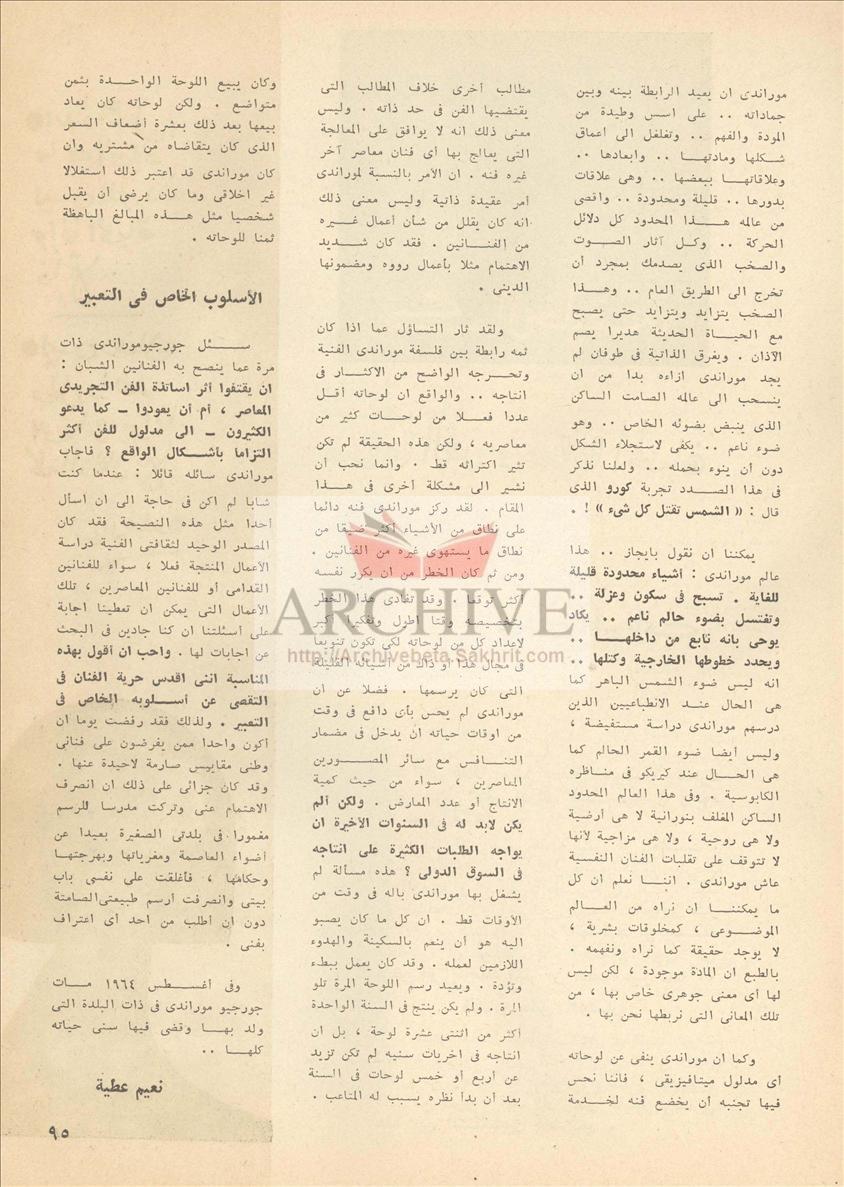 موراندى ان يعيد الرابطة بينه وبين
جماداته .. على اسس وطيدة من
المودة والفهم .. وتغلغل الى أعماق
شكلها ومادتها .. وابعادها ..
وعلاقاتها ببعضها .. وهى علاقات
بدورها .. قليلة ومحدودة .. واقصى
من عالمه هذا المحدود كل دلائل
الحركة .. وكل آثار الصوت
والصخب الذى يصدمك بمجرد أن
تخرج الى الطريق العام .. وهذا
الصخب يتزايد ويتزايد حتى يصبح
مع الحياة الحديثة هديرا يصم
الآذان . ويغرق الذاتية فى طوفان لم
يجد موراندى ازاءه بدا من ان
ينسحب الى عالمه الصامت الساكن
الذى ينبض بضوئه الخاص .. وهو
ضوء ناعم .. يكفى لاستجلاء الشكل
دون أن ينوء بحمله .. ولعلنا نذكر
فى هذا الصدد تجربة كورو الذى
قال : « الشمس تقتل كل شىء » ! .
يمكننا ان نقول بايجاز .. هذا
عالم موراندى : أشياء محدودة قليلة
للغاية . تسبح فى سكون وعزلة ..
وتغتسل بضوء حالم ناعم .. يكاد
يوحى بانه نابع من داخلها ..
ويحدد خطوطها الخارجية وكتلها ..
انه ليس ضوء الشمس الباهر كما
هى الحال عند الانطباعيين الذين
درسهم موراندى دراسة مستفيضة ،
وليس أيضا ضوء القمر الحالم كما
هى الحال عند كيريكو فى مناظره
الكابوسية . وفى هذا العالم المحدود
الساكن المغلف بنورانية لا هى أرضية
ولا هى روحية ، ولا هى مزاجية لأنها
لا تتوقف على تقلبات الفنان النفسية
عاش موراندى . اننا نعلم ان كل
ما يمكننا ان نراه من العالم
الموضوعى ، كمخلوقات بشرية ،
لا يوجد حقيقة كما نراه ونفهمه .
بالطبع ان المادة موجودة ، لكن ليس
لها أى معنى جوهرى خاص بها ، من
تلك المعانى التى نربطها نحن بها .
وكما ان موراندى ينفى عن لوحاته
أى مدلول ميتافيزيقى ، فاننا نحس
فيها تجنبه أن يخضع فنه لخدمة
مطالب أخرى خلاف المطالب التى
يقتضيها الفن فى حد ذاته . وليس
معنى ذلك انه لا يوافق على المعالجة
التى يعالج بها أى فنان معاصر آخر
غيره فنه . ان الأمر بالنسبة لموراندى
أمر عقيدة ذاتية وليس معنى ذلك
انه كان يقلل من شأن أعمال غيره
من الفنانين . فقد كان شديد
الاهتمام مثلا بأعمال رووه ومضمونها
الدينى .
ولقد ثار التساؤل عما اذا كان
ثمه رابطة بين فلسفة موراندى الفنية
وتحرجه الواضح من الاكثار فى
انتاجه .. والواقع ان لوحاته أقل
عددا فعلا من لوحات كثير من
معاصريه ، ولكن هذه الحقيقة لم تكن
تثير اكتراثه قط . وانما نحب أن
نشير الى مشكلة أخرى فى هذا
المقام . لقد ركز موراندى فنه دائما
على نطاق من الأشياء أكثر ضيقا من
نطاق ما يستهوى غيره من الفنانين .
ومن ثم كان الخطر من ان يكرر نفسه
أكثر توقعا . وقد تفادى هذا الخطر
بتخصيصه وقتا أطول وتفكيرا أكبر
لاعداد كل من لوحاته لكى تكون تنويعا
فى مجال هذا أو ذاك من أشيائه القليلة
التى كان يرسمها . فضلا عن ان
موراندى لم يحس بأى دافع فى وقت
من اوقات حياته ان يدخل فى مضمار
التنافس مع سائر المصورين
المعاصرين ، سواء من حيث كمية
الانتاج أو عدد المعارض . ولكن ألم
يكن لابد له فى السنوات الأخيرة ان
يواجه الطلبات الكثيرة على انتاجه
فى السوق الدولى ؟ هذه مسألة لم
يشغل بها موراندى باله فى وقت من
الأوقات قط . ان كل ما كان يصبو
اليه هو أن ينعم بالسكينة والهدوء
اللازمين لعمله . وقد كان يعمل ببطء
وتؤدة . ويعيد رسم اللوحة المرة تلو
المرة . ولم يكن ينتج فى السنة الواحدة
أكثر من اثنتى عشرة لوحة ، بل ان
انتاجه فى اخريات سنيه لم تكن تزيد
عن أربع أو خمس لوحات فى السنة
بعد أن بدأ نظره يسبب له المتاعب .
وكان يبيع اللوحة الواحدة بثمن
متواضع . ولكن لوحاته كان يعاد
بيعها بعد ذلك بعشرة أضعاف السعر
الذى كان يتقاضاه من مشتريه وان
كان موراندى قد اعتبر ذلك استغلالا
غير اخلاقى وما كان يرضى أن يقبل
شخصيا مثل هذه المبالغ الباهظة
ثمنا للوحاته .
الأسلوب الخاص فى التعبير
سئل جورجيوموراندى ذات
مرة عما ينصح به الفنانين الشبان :
ان يقتفوا أثر اساتذة الفن التجريدى
المعاصر ، أم أن يعودوا ــ كما يدعو
الكثيرون ــ الى مدلول للفن أكثر
التزاما بأشكال الواقع ؟ فاجاب
موراندى سائله قائلا : عندما كنت
شابا لم اكن فى حاجة الى ان اسأل
أحدا مثل هذه النصيحة فقد كان
المصدر الوحيد لثقافتى الفنية دراسة
الأعمال المنتجة فعلا ، سواء للفنانين
القدامى أو للفنانين المعاصرين ، تلك
الأعمال التى يمكن ان تعطينا اجابة
على أسئلتنا ان كنا جادين فى البحث
عن اجابات لها . واحب ان أقول بهذه
المناسبة اننى اقدس حرية الفنان فى
التقصى عن أسلوبه الخاص فى
التعبير . ولذلك فقد رفضت يوما ان
أكون واحدا ممن يفرضون على فنانى
وطنى مقاييس صارمة لاحيدة عنها .
وقد كان جزائى على ذلك ان انصرف
الاهتمام عنى وتركت مدرسا للرسم
مغمورا فى بلدتى الصغيرة بعيدا عن
أضواء العاصمة ومغرياتها وبهرجتها
وحكامها ، فأغلقت على نفسى باب
بيتى وانصرفت أرسم طبيعتى الصامتة
دون ان أطلب من احد أى اعتراف
بفنى .
وفى أغسطس ١٩٦٤ مات
جورجيو موراندى فى ذات البلدة التى
ولد بها وقضى فيها سنى حياته
كلها ..
نعيم عطية
٩٥
ARCHIVE
http://Archivebeta.Sakhrit.com